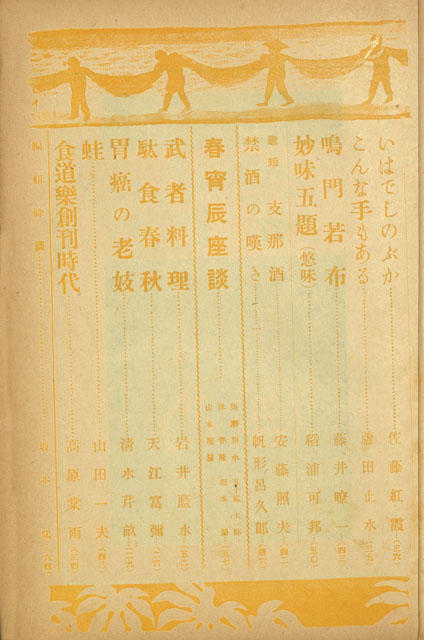 いはでしのぶか……佐藤紅霞…(三六)
こんな手もある……蘆田止水…(三九)
鳴門若布……藤井暸一…(四三)
妙味五題(悠味)……稻浦可邦…(五〇)
歌短 支那酒……安藤照夫…(四一)
禁酒の嘆き……帆形呂久郎…(四六)
春宵辰座談
武者料理……岩井藍水…
駄食春秋……天江富彌…
胃癌の老妓……清水芹畝…
蛙……山田一夫…(四八)
食道樂創刊時代……高原棠雨
編輯